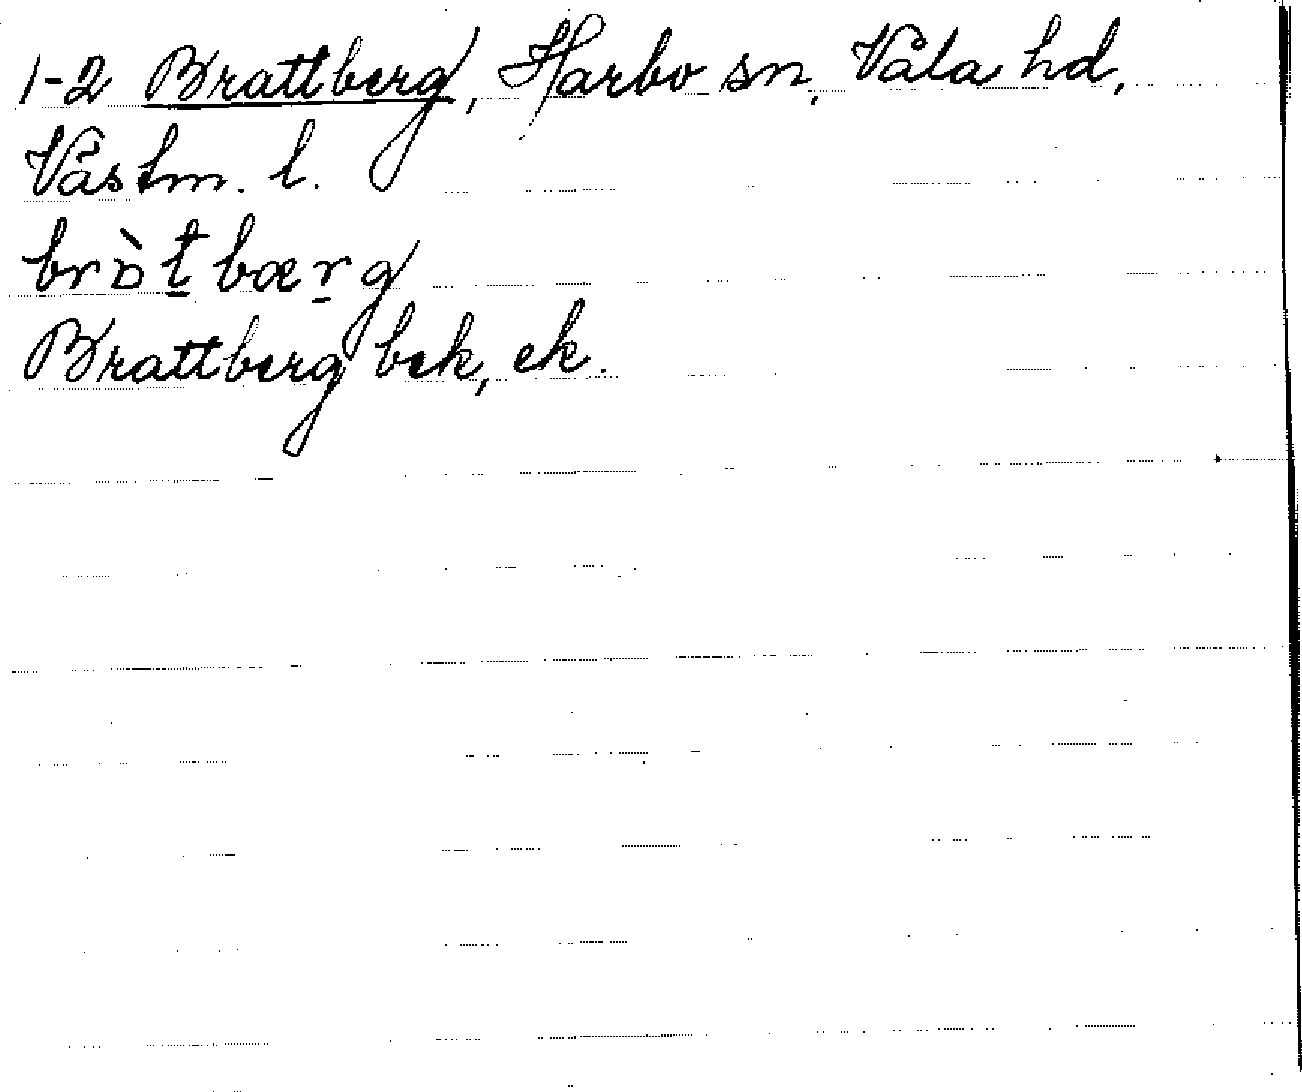 1-2 Brattberg, Harbo sn, Våla hd,
Västm. l.
bròt̲bær̲g
Brattberg bek, ek.